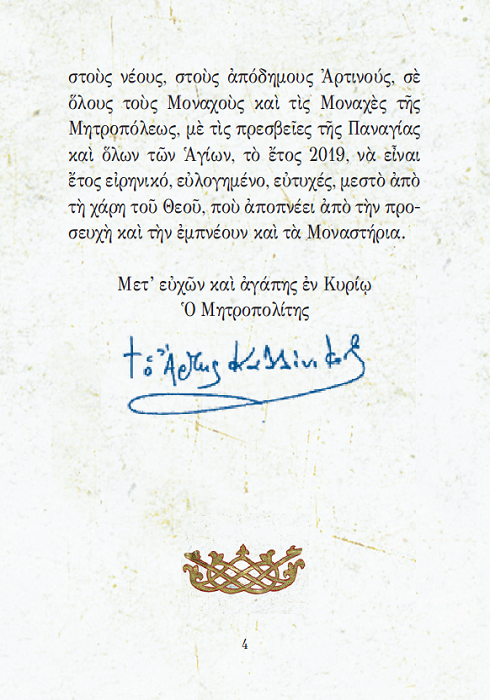 στοὺς νέους, στοὺς ἀπόδημους Ἀρτινούς, σὲ
ὅλους τοὺς Μοναχοὺς καὶ τὶς Μοναχὲς τῆς
Μητροπόλεως, μὲ τὶς πρεσβεῖες τῆς Παναγίας
καὶ ὅλων τῶν Ἁγίων, τὸ ἔτος 2019, νὰ εἶναι
ἔτος εἰρηνικό, εὐλογημένο, εὐτυχές, μεστὸ ἀπὸ
τὴ χάρη τοῦ Θεοῦ, ποὺ ἀποπνέει ἀπὸ τὴν προ-
σευχὴ καὶ τὴν ἐμπνέουν καὶ τὰ Μοναστήρια.
Μετ’ εὐχῶν καὶ ἀγάπης ἐν Κυρίῳ
Ὁ Μητροπολίτης
† ὁ Ἄρτης Καλλίνικος
4